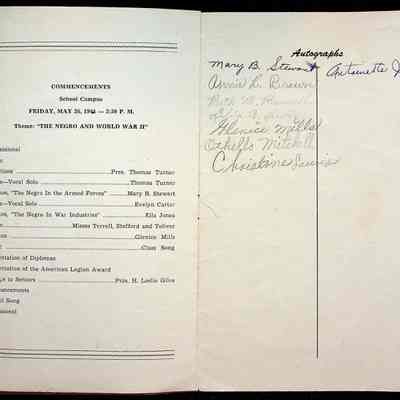 COMMENCEMENTS
School Campus
FRIDAY, MAY 26, 1944 — 2:30 P. M.
Theme: "THE NEGRO AND WORLD WAR II"
Pres. Thomas Turner
—Vocal Solo Thomas Turner
"The Negro In the Armed Forces" Mary B. Stewart
—Vocal Solo Evelyn Carter
"The Negro In War Industries" Ella Jones
Misses Terrell, Stefford and Toliver
Glenice Mills
Class Song
of Diplomas
of the American Legion Award
to Seniors Prin. H. Leslie Giles
Song
Autographs
Mary B. Stewart
Annie L. Brown
Glenice Mills
Othello Mitchell
Christine
Antoinette J